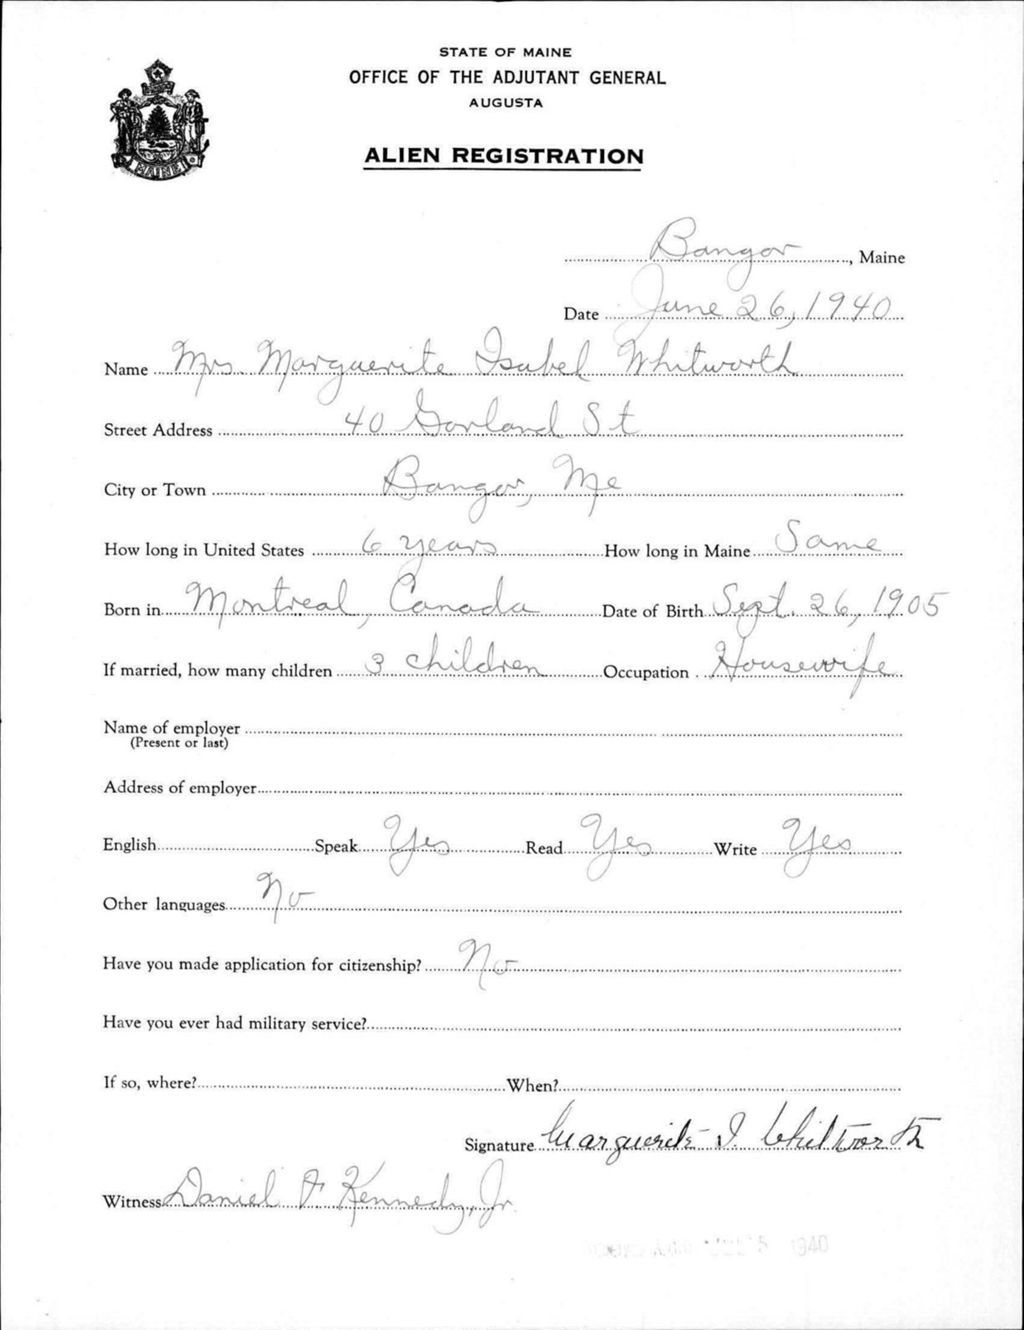 STATE OF MAINE
OFFICE OF THE ADJUTANT GENERAL
AUGUSTA
ALIEN REGISTRATION
MAINE
Bangor, Maine
Date June 26, 1940
Name Mrs. Marguerite Isabel Whitworth
Street Address 40 Garland St
City or Town Bangor, Me
How long in United States 6 years How long in Maine Same
Born in Montreal, Canada Date of Birth Sept. 26, 1905
If married, how many children 3 children Occupation Housewife
Name of employer
(Present or last)
Address of employer
English Speak Yes Read Yes Write Yes
Other languages No
Have you made application for citizenship? No
Have you ever had military service?
If so, where? When?
Signature Marguerite I. Whitworth
Witness Daniel F Kennedy, Jr.
1940